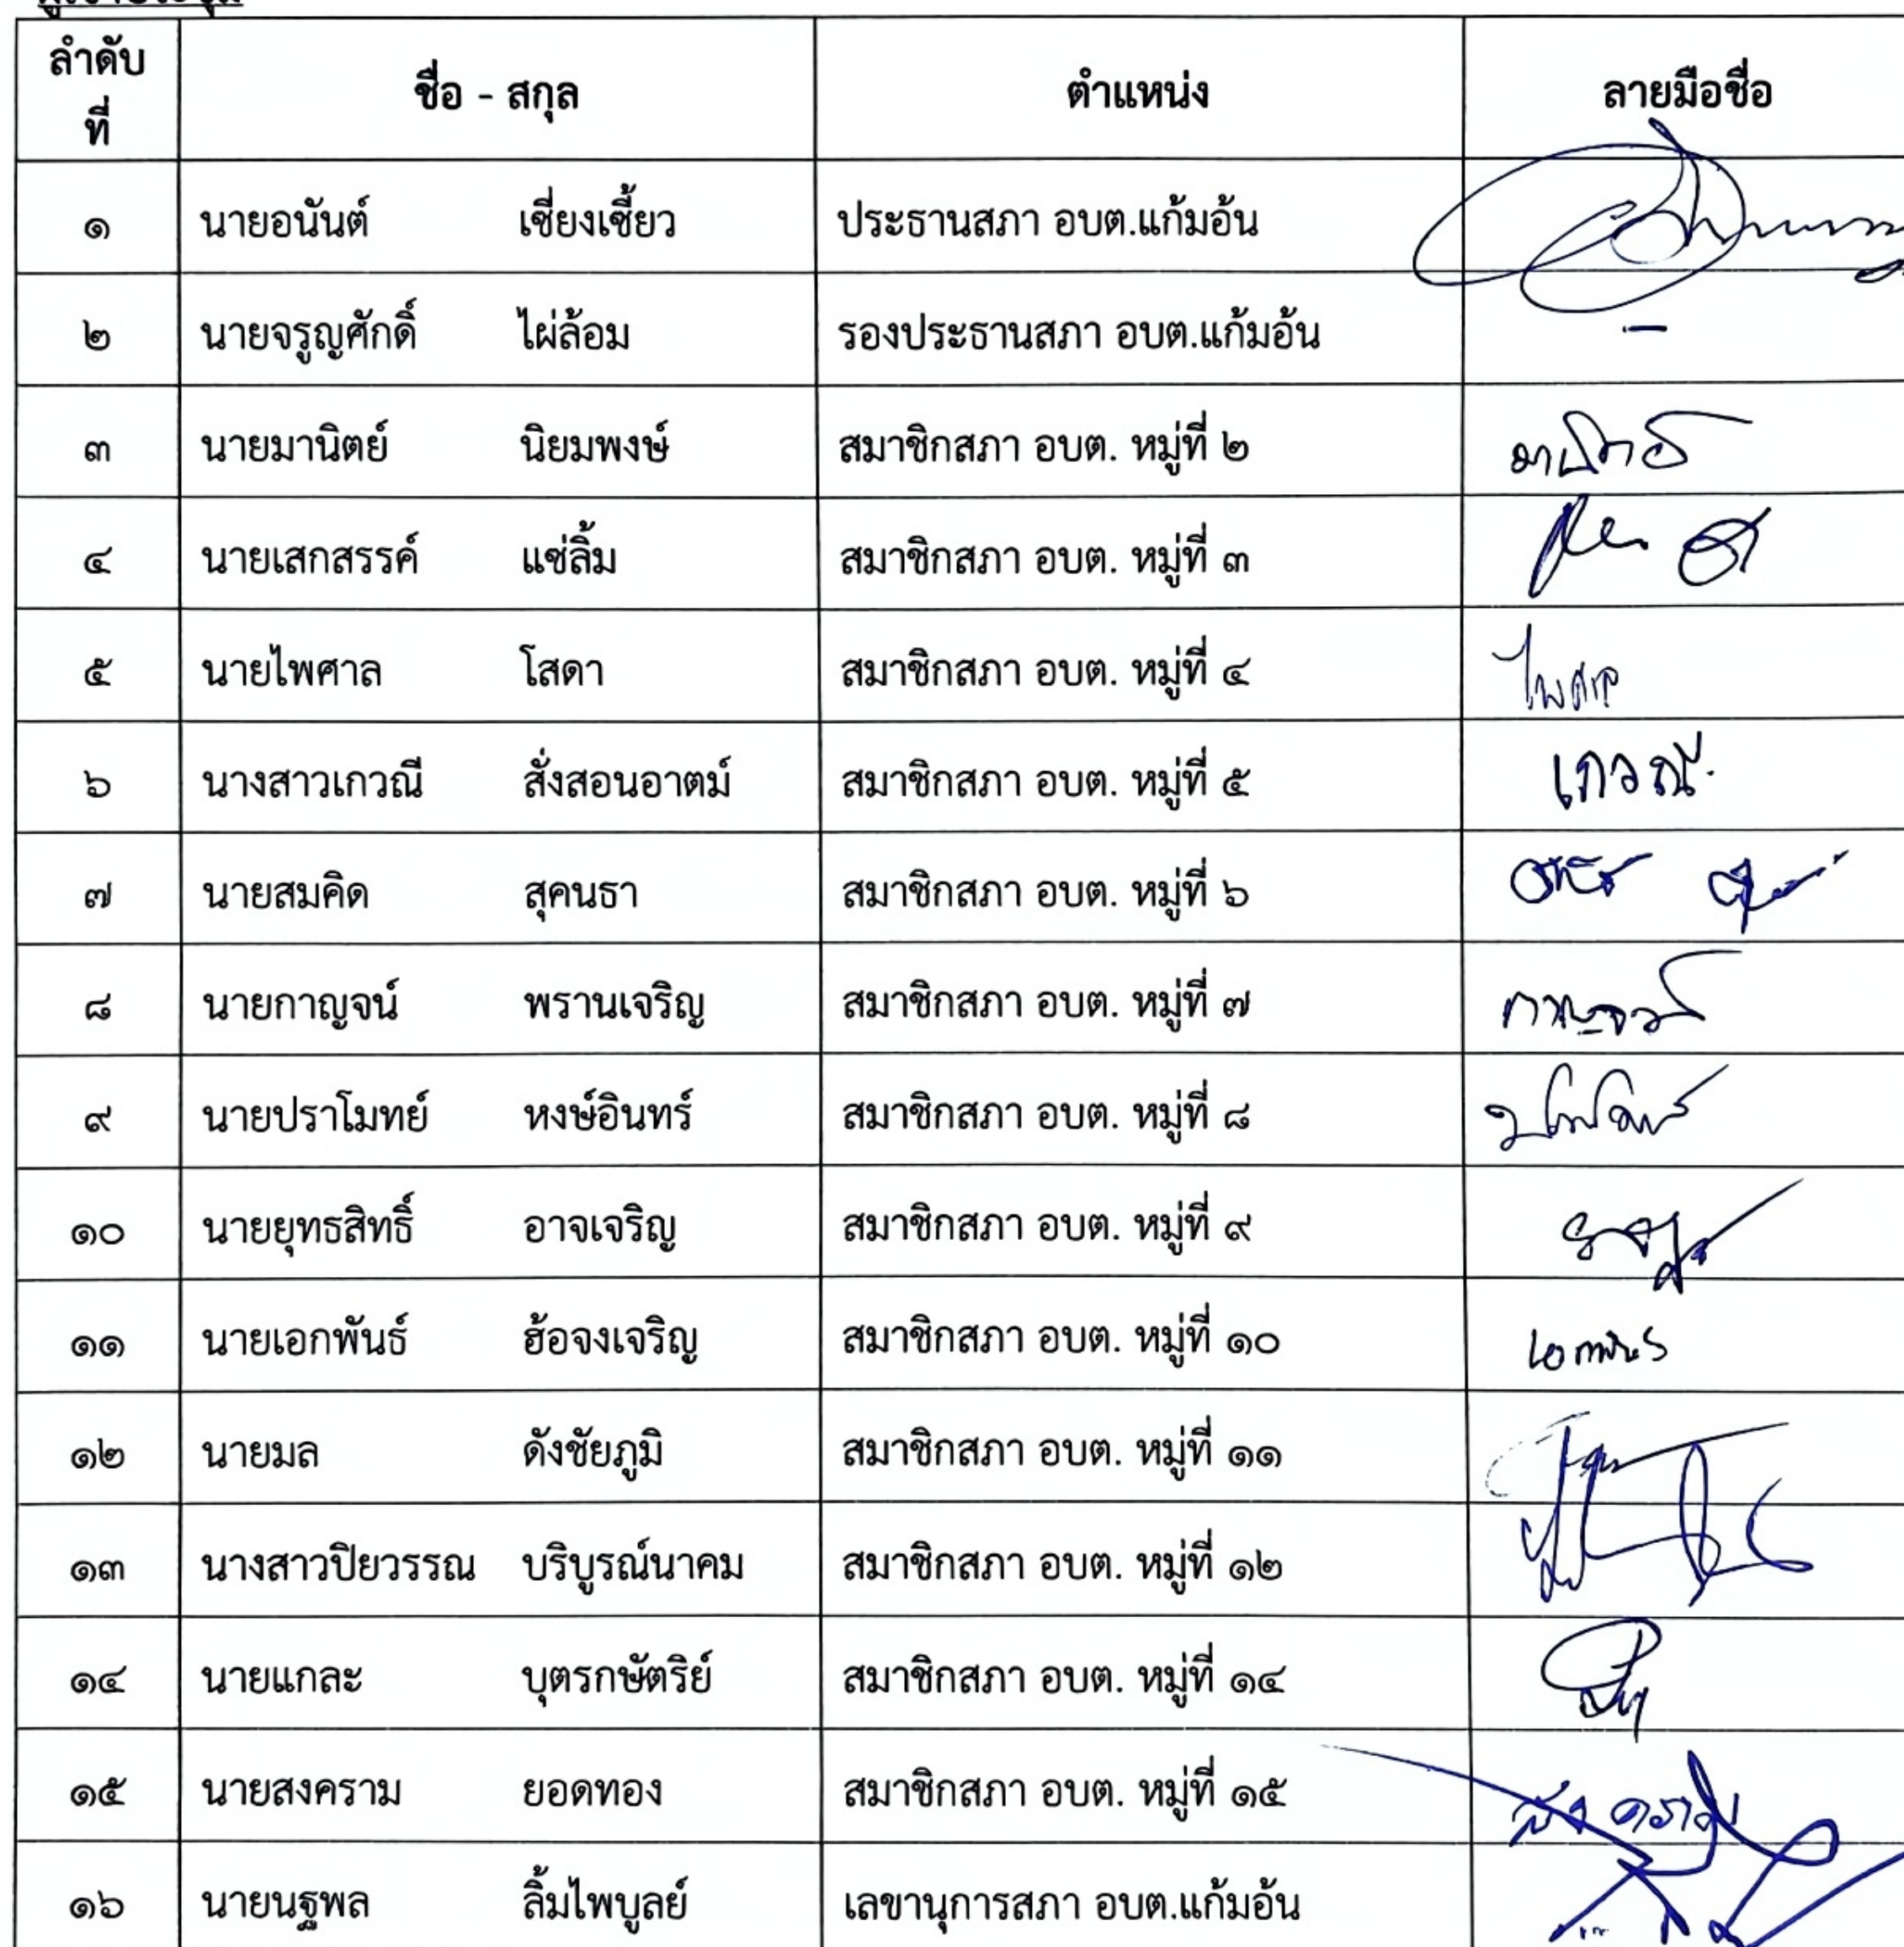 ผู้เข้าประชุม
ลำดับที่ ชื่อ - สกุล ตำแหน่ง ลายมือชื่อ
๑ นายอนันต์ เซี่ยงเซี้ยว ประธานสภา อบต.แก้มอ้น
๒ นายจรูญศักดิ์ ไผ่ล้อม รองประธานสภา อบต.แก้มอ้น -
๓ นายมานิตย์ นิยมพงษ์ สมาชิกสภา อบต. หมู่ที่ ๒ มานิตย์
๔ นายเสกสรรค์ แซ่ลิ้ม สมาชิกสภา อบต. หมู่ที่ ๓
๕ นายไพศาล โสดา สมาชิกสภา อบต. หมู่ที่ ๔ ไพศาล
๖ นางสาวเกวณี สั่งสอนอาตม์ สมาชิกสภา อบต. หมู่ที่ ๕ เกวณี
๗ นายสมคิด สุคนธา สมาชิกสภา อบต. หมู่ที่ ๖
๘ นายกาญจน์ พรานเจริญ สมาชิกสภา อบต. หมู่ที่ ๗ กาญจน์
๙ นายปราโมทย์ หงษ์อินทร์ สมาชิกสภา อบต. หมู่ที่ ๘
๑๐ นายยุทธสิทธิ์ อาจเจริญ สมาชิกสภา อบต. หมู่ที่ ๙
๑๑ นายเอกพันธ์ ฮ้อจงเจริญ สมาชิกสภา อบต. หมู่ที่ ๑๐ เอกพันธ์
๑๒ นายมล ดังชัยภูมิ สมาชิกสภา อบต. หมู่ที่ ๑๑
๑๓ นางสาวปิยวรรณ บริบูรณ์นาคม สมาชิกสภา อบต. หมู่ที่ ๑๒
๑๔ นายแกละ บุตรกษัตริย์ สมาชิกสภา อบต. หมู่ที่ ๑๔
๑๕ นายสงคราม ยอดทอง สมาชิกสภา อบต. หมู่ที่ ๑๕ สงคราม
๑๖ นายนฐพล ลิ้มไพบูลย์ เลขานุการสภา อบต.แก้มอ้น